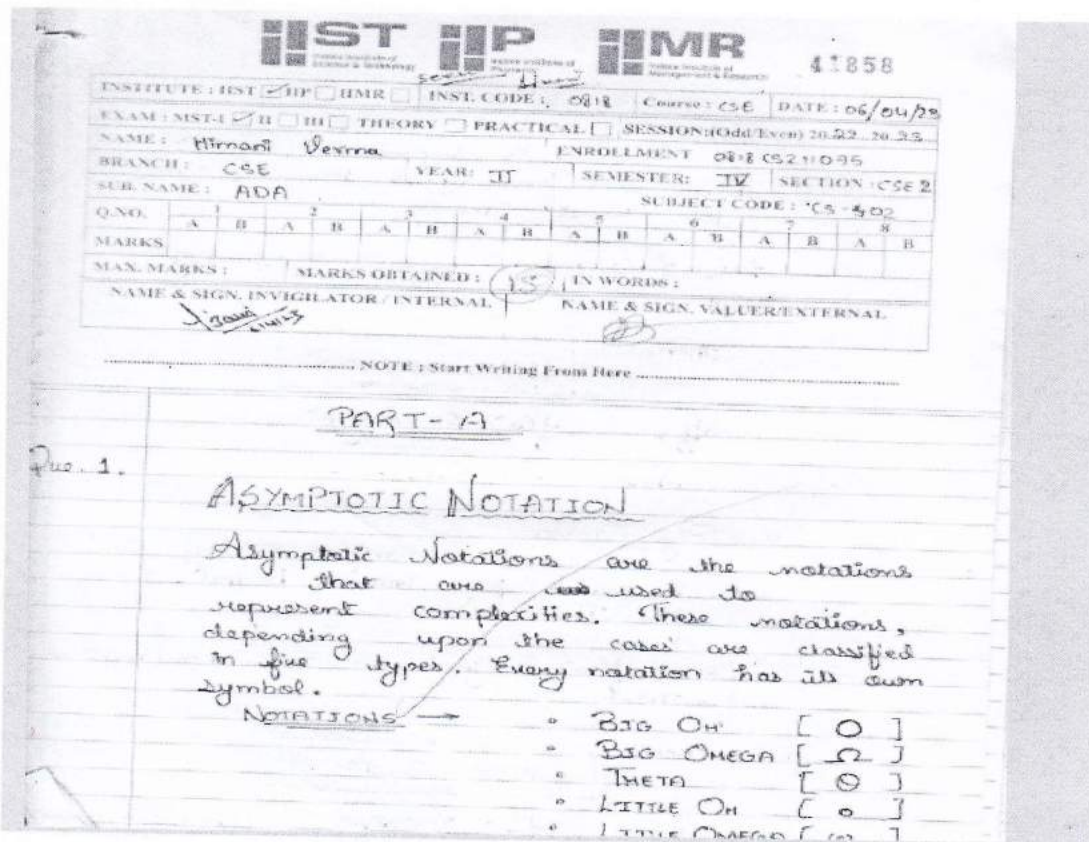 IIST IIP IIMR 41858
Indore Institute of Science & Technology Indore Institute of Pharmacy Indore Institute of Management & Research
INSTITUTE : IIST ☑ IIP ☐ IIMR ☐ INST. CODE : 0818 Course : CSE DATE : 06/04/23
EXAM : MST-I ☑ II ☐ III ☐ THEORY ☐ PRACTICAL ☐ SESSION:(Odd/Even) 2022-2023
NAME : Himani Verma ENROLLMENT 0818CS211095
BRANCH : CSE YEAR: II SEMESTER: IV SECTION : CSE 2
SUB. NAME : ADA SUBJECT CODE : CS-402
Q.NO. 1 2 3 4 5 6 7 8
A B A B A B A B A B A B A B A B
MARKS
MAX. MARKS : MARKS OBTAINED : 15 IN WORDS :
NAME & SIGN. INVIGILATOR / INTERNAL NAME & SIGN. VALUER/EXTERNAL
NOTE : Start Writing From Here
PART - A
Que. 1.
ASYMPTOTIC NOTATION
Asymptotic Notations are the notations
that are used to
represent complexities. These notations,
depending upon the cases are classified
in five types. Every notation has its own
symbol.
NOTATIONS → • BIG OH [ O ]
• BIG OMEGA [ Ω ]
• THETA [ Θ ]
• LITTLE OH [ o ]
• LITTLE OMEGA [ ω ]